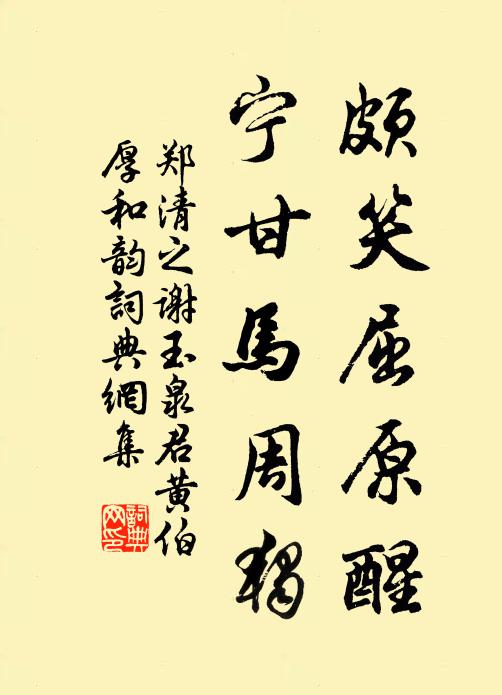 颇笑屈原醒
宁甘馬周独
郑清之谢玉泉君黄伯
厚和韵詞典網集
詞典
网印